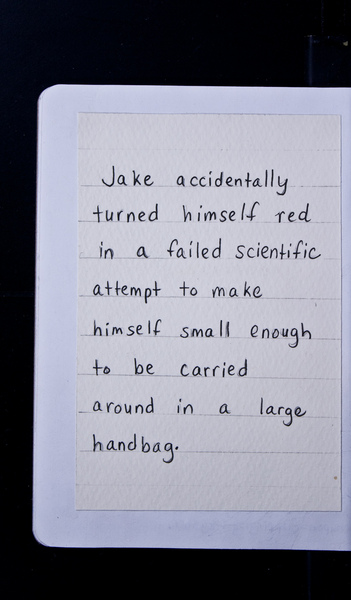 Jake accidentally
turned himself red
in a failed scientific
attempt to make
himself small enough
to be carried
around in a large
handbag.